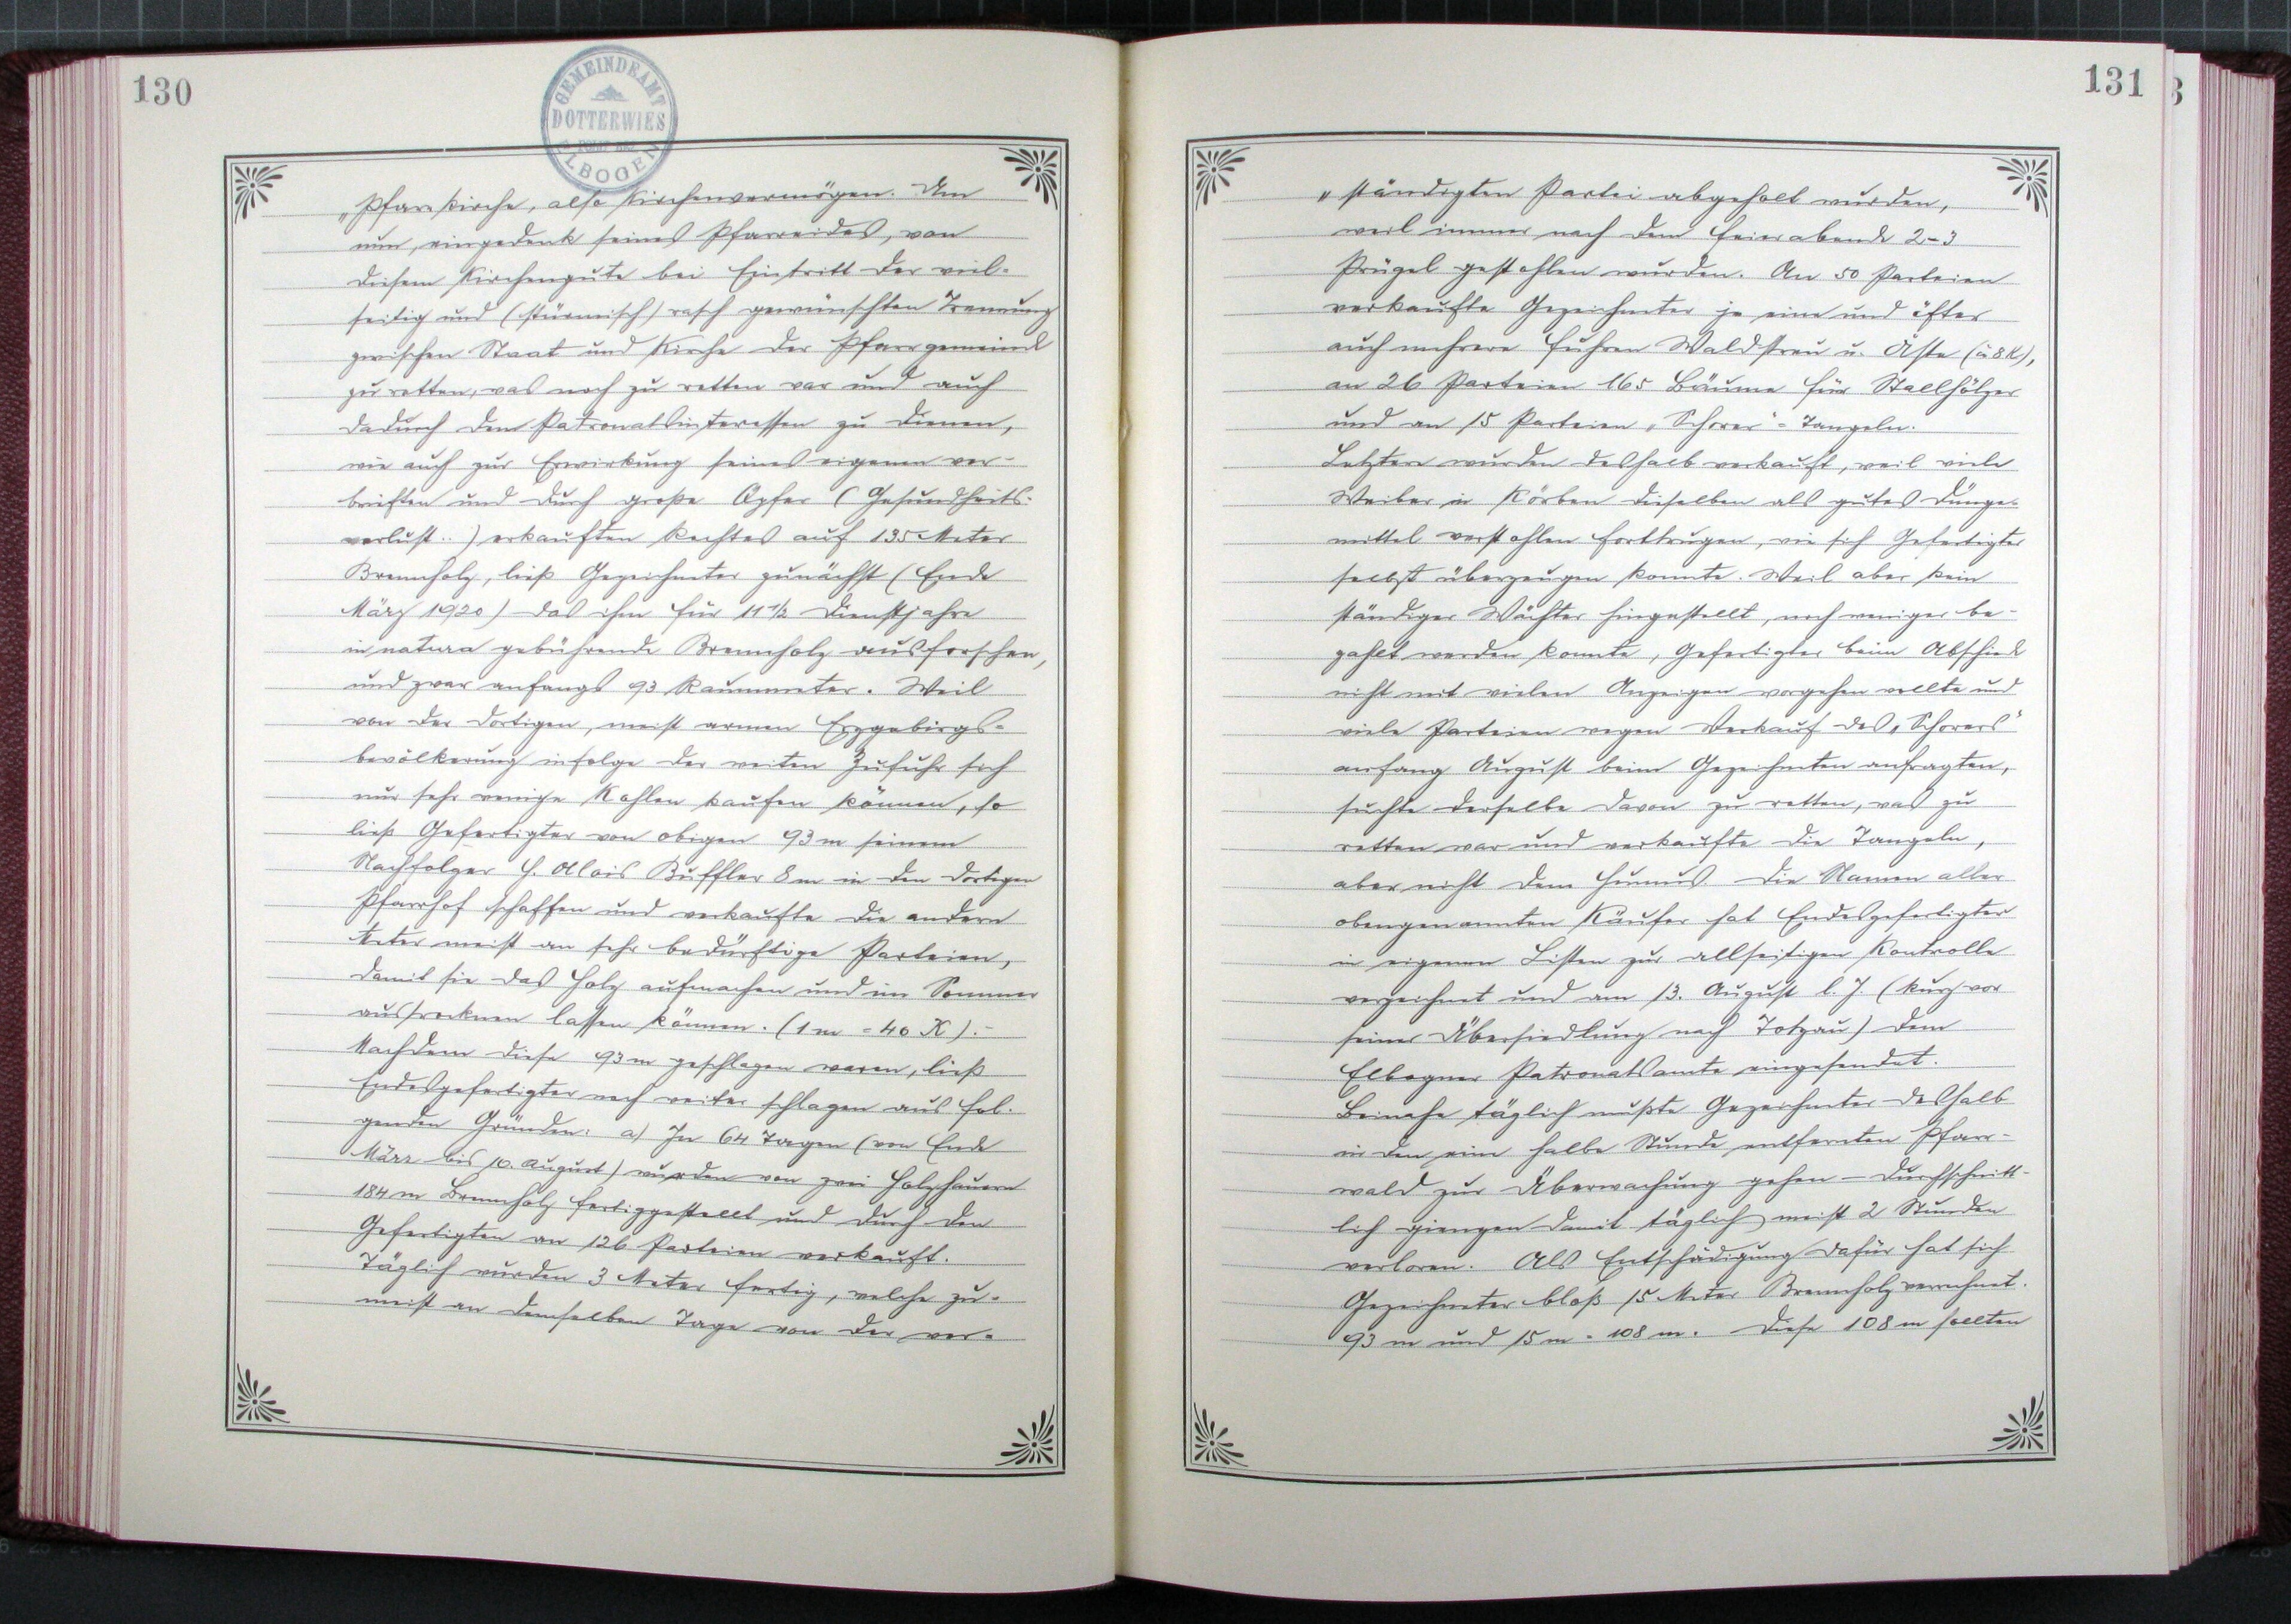 130
GEMEINDEAMT
DOTTERWIES
ELBOGEN
„Pfarrkirche, also Kirchenvermögen. Um
nun, eingedenk seines Pfarreides, von
diesem Kirchengute bei Eintritt der viel-
seitig und (stürmisch) rasch gewünschten Trennung
zwischen Staat und Kirche der Pfarrgemeinde
zu retten, was noch zu retten war und auch
dadurch den Patronatsinteressen zu dienen,
wie auch zur Erwirkung seines eigenen ver-
brieften und durch große Opfer (Gesundheits-
verlust..) erkauften Rechtes auf 135 Meter
Brennholz, ließ Gezeichneter zunächst (Ende
März 1920) das ihm für 11½ Dienstjahre
in natura gebührende Brennholz ausforschen,
und zwar anfangs 93 Raummeter. Weil
von der dortigen, meist armen Erzgebirgs-
bevölkerung infolge der weiten Zufuhr sich
nur sehr wenige Kohlen kaufen können, so
ließ Gefertigter von obigen 93 m seinem
Nachfolger H. Alois Buffler 8 m in den dortigen
Pfarrhof schaffen und verkaufte die andern
Meter meist an sehr bedürftige Parteien,
damit sie das Holz aufmachen und im Sommer
austrocknen lassen können. (1 m = 40 K).-
Nachdem diese 93 m geschlagen waren, ließ
Endesgefertigter noch weiter schlagen aus fol-
genden Gründen: a) In 64 Tagen (von Ende
März bis 10. August) wurden von zwei Holzhauern
184 m Brennholz fertiggestellt und durch den
Gefertigten an 126 Parteien verkauft.
Täglich wurden 3 Meter fertig, welche zu-
meist an demselben Tage von der ver-
131
„ständigten Partei abgeholt wurden,
weil immer nach dem Feierabende 2-3
Prügel gestohlen wurden. An 50 Parteien
verkaufte Gezeichneter je eine und öfter
auch mehrere Fuhren Waldstreu u. Äste (à 8 K),
an 26 Parteien 165 Bäume für Stallhölzer
und an 15 Parteien „Schorer"-Tangeln.
Letztere wurden deshalb verkauft, weil viele
Weiber in Körben dieselben als gutes Dünge-
mittel verstohlen forttrugen, wie sich Gefertigter
selbst überzeugen konnte. Weil aber kein
ständiger Wächter hingestellt, noch weniger be-
zahlt werden konnte, Gefertigter beim Abschied
nicht mit vielen Anzeigen vorgehen wollte und
viele Parteien wegen Verkauf des „Schorers"
anfang August beim Gezeichneten anfragten,
suchte derselbe davon zu retten, was zu
retten war und verkaufte die Tangeln,
aber nicht den Humus. Die Namen aller
obengenannten Käufer hat Endesgefertigter
in eigenen Listen zur allseitigen Kontrolle
verzeichnet und am 13. August l. J. (kurz vor
seiner Übersiedlung nach Totzau) dem
Elbogner Patronatsamte eingesendet.
Beinahe täglich mußte Gezeichneter deshalb
in den eine halbe Stunde entfernten Pfarr-
wald zur Überwachung gehen - durchschnitt-
lich giengen damit täglich meist 2 Stunden
verloren. Als Entschädigung dafür hat sich
Gezeichneter bloß 15 Meter Brennholz verrechnet.
93 m und 15 m = 108 m. Diese 108 m sollten